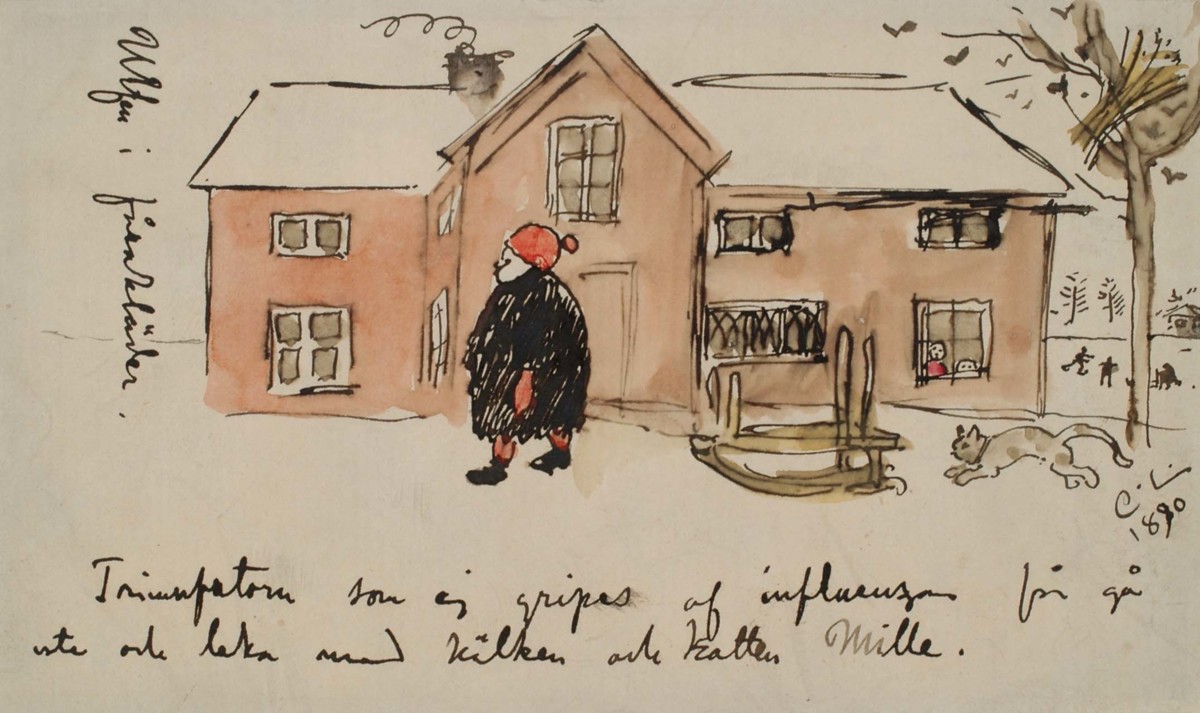 Ulfen i fårakläder.
C. L.
1890
Triumfatorn som ej gripes af influenzan får gå
ute och leka med kälken och katten Mille.